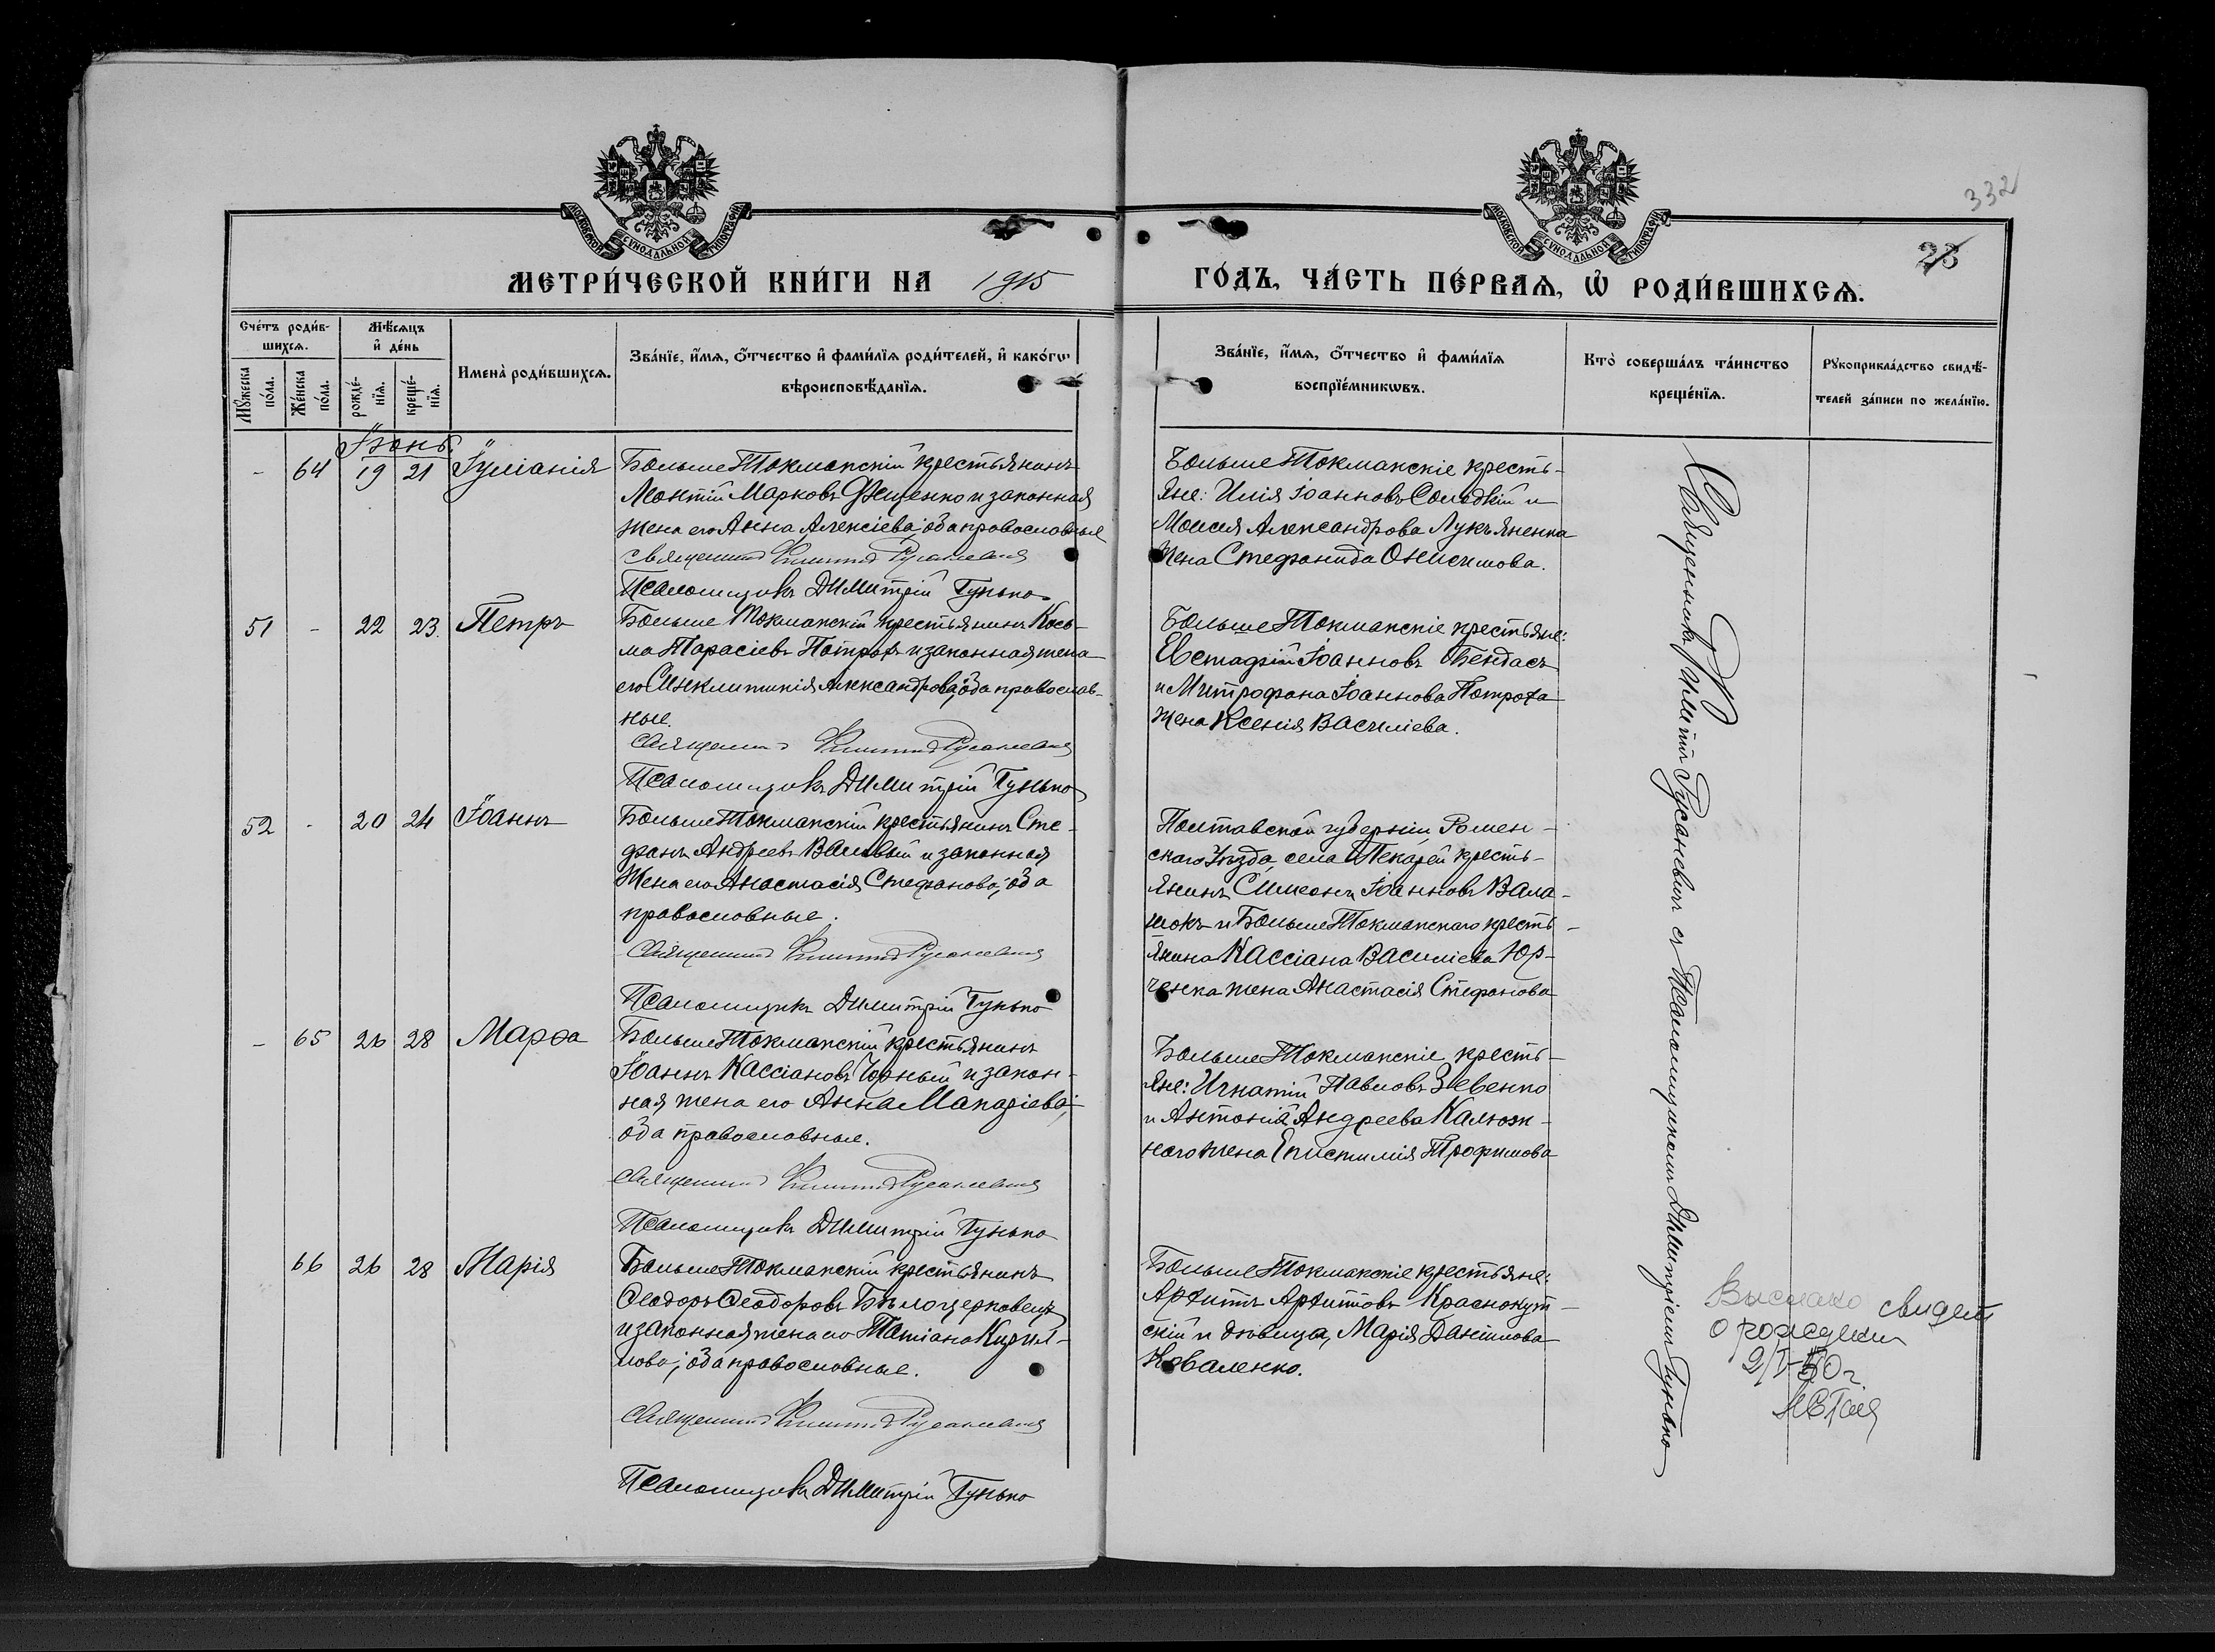 332
23
МОСКОВСКОЙ СѴНОДАЛЬНОЙ ТИПОГРАФІИ
МОСКОВСКОЙ СѴНОДАЛЬНОЙ ТИПОГРАФІИ
МЕТРИ́ЧЕСКОЙ КНИ́ГИ НА 1915 ГО́ДЪ, ЧА́СТЬ ПЕ́РВАѦ, Ѡ҆ РОДИ́ВШИХСѦ.
Сче́тъ роди́в-
шихсѧ.
Мѹ́жеска по́ла.
Же́нска по́ла.
Мѣ́сѧцъ
и҆ де́нь
рожде́-
нїѧ.
креще́-
нїѧ.
Имена̀ роди́вшихсѧ.
Зва́нїе, и҆́мѧ, ѻ҆́тчество и҆ фами́лїѧ роди́телей, и҆ како́гѡ
вѣроисповѣ́данїѧ.
Зва́нїе, и҆́мѧ, ѻ҆́тчество и҆ фами́лїѧ
воспрїе́мникѡвъ.
Кто̀ соверша́лъ та́инство
креще́нїѧ.
Рꙋкоприкла́дство свидѣ́-
телей за́писи по жела́нїю.
Іюнь.
- 64 19 21 Іуліанія
БольшеТокмакскій крестьянинъ
Леонтій Марковъ Ѳещенко и законная
жена его Анна Алексіева; оба православные
Священник Филипп Русаневич
Псаломщикъ Димитрій Гунько
БольшеТокмакскіе кресть-
яне: Илія Іоанновъ Солодкій и
Моисея Александрова Лукъяненка
жена Стефанида Онисимова.
51 - 22 23. Петръ
Больше Токмакскій крестьянинъ Кось-
ма Тарасіевъ Потроха и законная жена
его Синклитикія Александрова; оба православ-
ные.
Священник Филипп Русаневич
Псаломщикъ Димитрій Гунько
БольшеТокмакскіе крестьяне:
Евстафій Іоанновъ Бендасъ
и Митрофана Іоаннова Потроха
жена Ксенія Василіева.
52 - 20 24 Іоаннъ
БольшеТокмакскій крестьянинъ Сте-
фанъ Андреевъ Валовый и законная
жена его Анастасія Стефанова; оба
православные.
Священник Филипп Русаневич
Псаломщикъ Димитрій Гунько
Полтавской губерніи Ромен-
скаго уѣзда, села Пекарей кресть-
янинъ Симеонъ Іоанновъ Вала-
шокъ и БольшеТокмакскаго кресть-
янина Кассіана Василіева Юр-
ченка жена Анастасія Стефанова
- 65 26 28 Марѳа
БольшеТокмакскій крестьянинъ
Іоаннъ Кассіановъ Чорный и закон-
ная жена его Анна Макаріева;
оба православные.
Священник Филипп Русаневич
Псаломщикъ Димитрій Гунько
БольшеТокмакскіе кресть-
яне: Игнатій Павловъ Зевенко
и Антонія Андреева Калюж-
наго жена Епистимія Трофимова
66 26 28 Марія
БольшеТокмакскій крестьянинъ
Ѳеодоръ Ѳеодоровъ Бѣлоцерковецъ
и законная жена его Татіана Кирил-
лова; оба православные.
Священник Филипп Русаневич
Псаломщикъ Димитрій Гунько
БольшеТокмакскіе крестьяне:
Архиппъ Архипповъ Краснокут-
скій и дѣвица, Марія Даніилова
Коваленко.
Священникъ Филиппъ Русаневичъ съ Псаломщикомъ Димитріемъ Гунько
свидет
о рождении
2/I-50г.